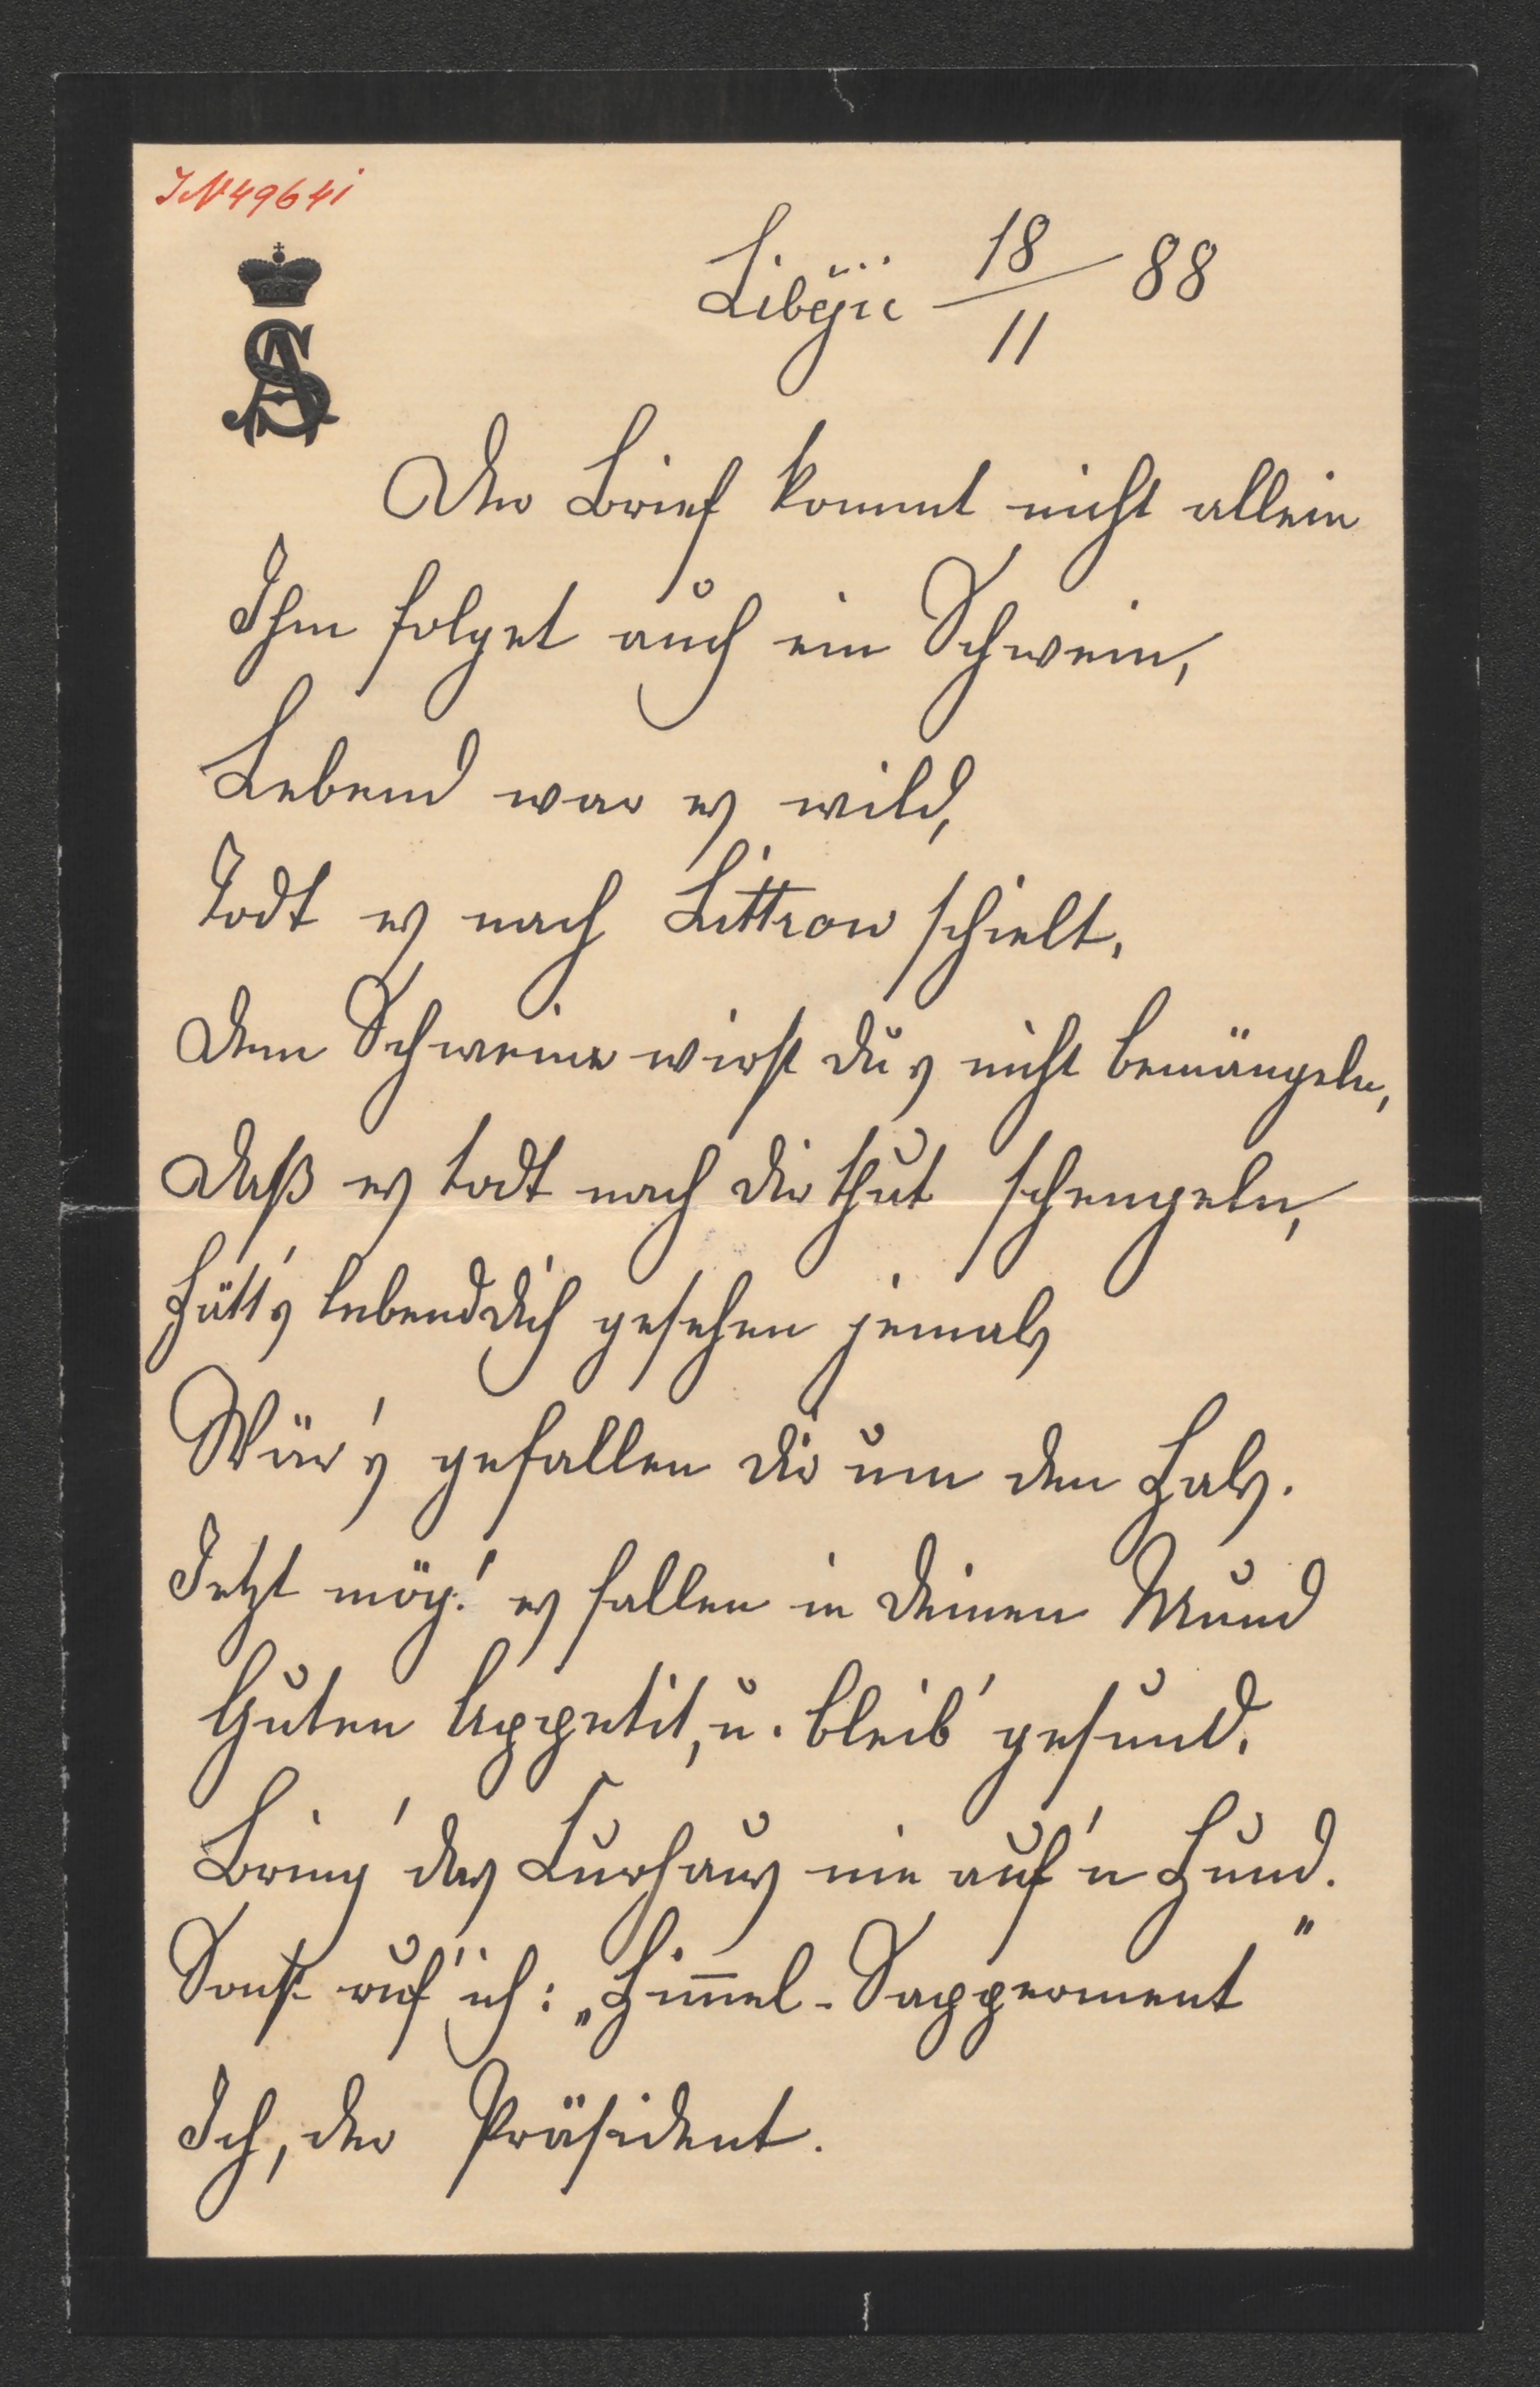 IN 49641
AS
Libějic 18/11 88
Der Brief kommt nicht allein
Ihm folget auch ein Schwein,
Lebend war es wild,
Todt es nach Littrow schielt.
Dem Schweine wirst du's nicht bemängeln,
Daß es todt nach dir thut schengeln,
Hätt's lebend dich gesehen jemals
Wär's gefallen dir um den Hals.
Jetzt mög' es fallen in deinen Mund
Guten Appetit, u. bleib' gesund.
Bring' das Curhaus nie auf'n Hund.
Sonst ruf' ich: „Him̅el-Sapperment"
Ich, der Präsident.